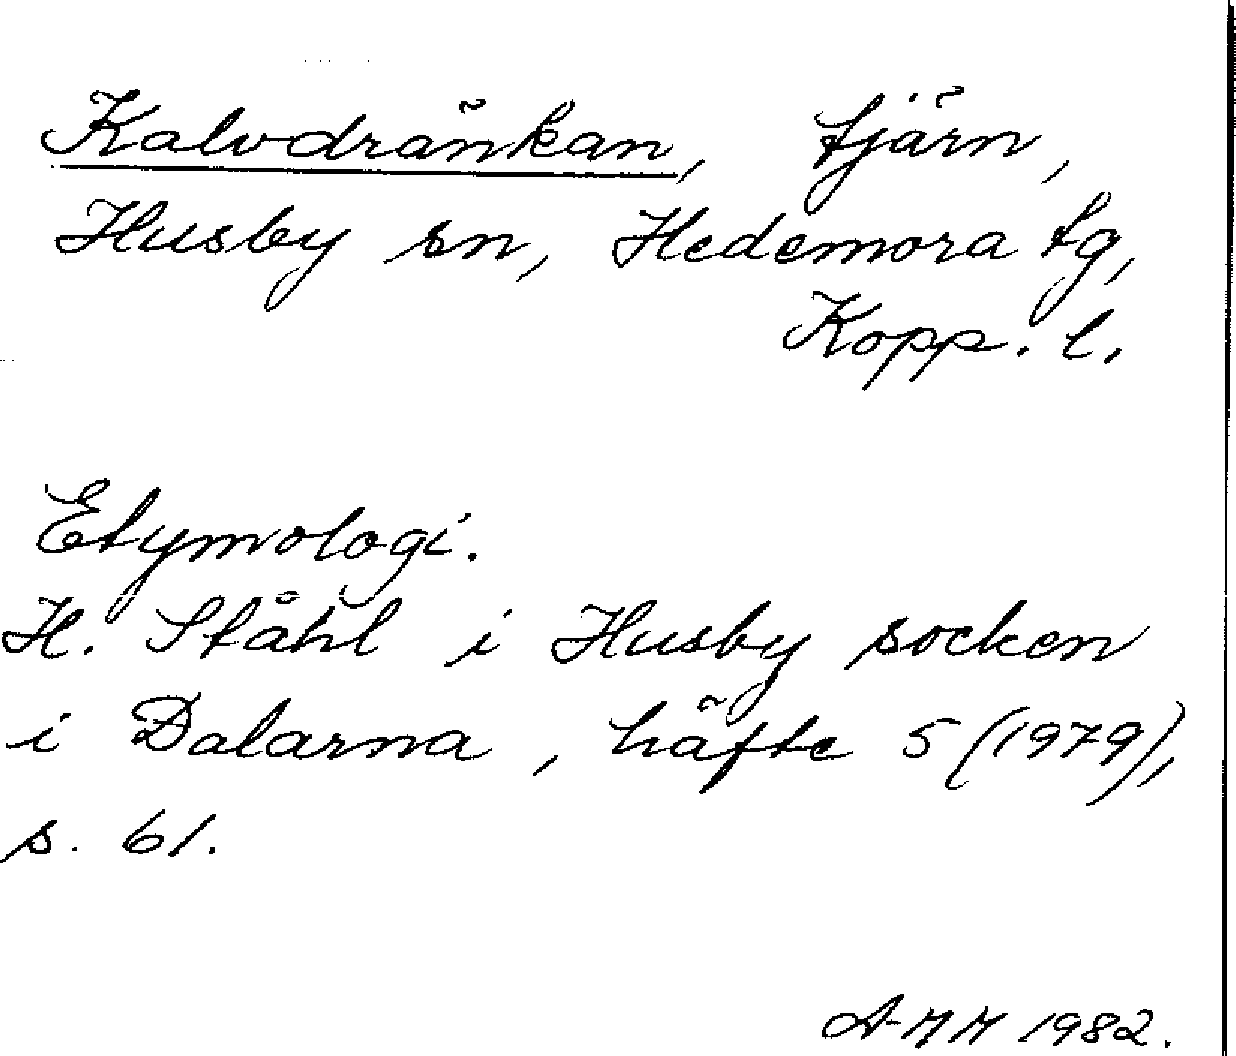 Kalvdränkan, tjärn,
Husby sn, Hedemora tg,
Kopp. l.
Etymologi.
H. Ståhl i Husby socken
i Dalarna, häfte 5 (1979),
s. 61.
AMM 1982.